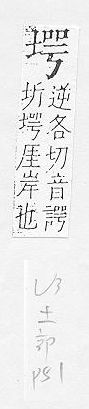 堮
逆各切音諤
圻堮厓岸也
V3
土部
P51